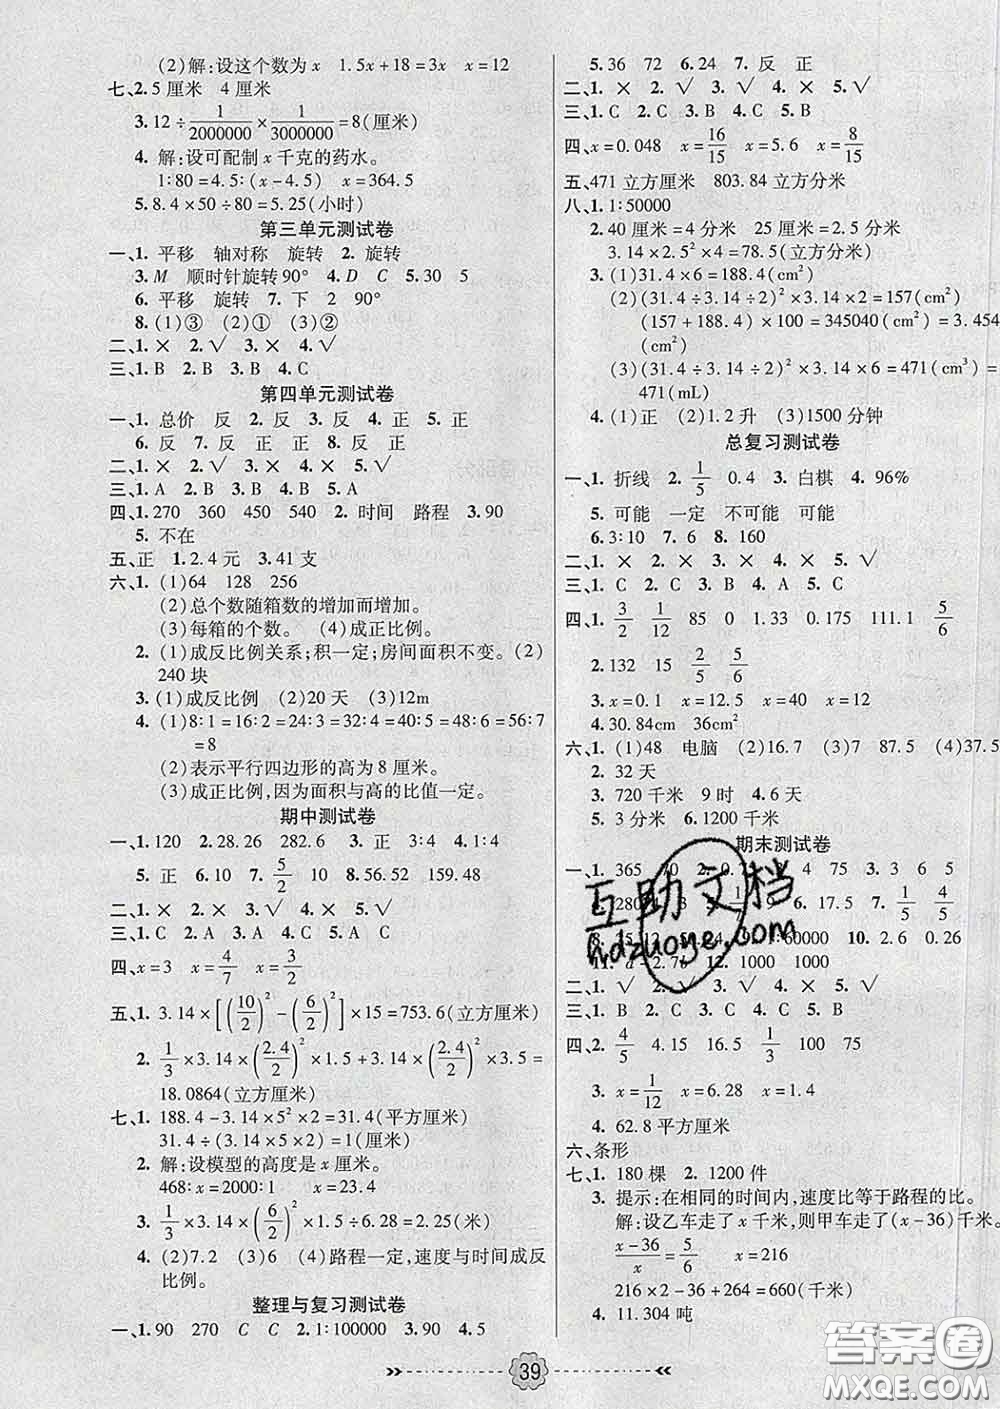 (2)解:设这个数为x 1.5x+18=3x x=12
七、2.5厘米 4厘米
3.12÷1/2000000×1/3000000=8(厘米)
4. 解:设可配制x千克的药水。
1∶80=4.5∶(x-4.5) x=364.5
5.8.4×50÷80=5.25(小时)
第三单元测试卷
一、1. 平移 轴对称 旋转 2. 旋转
3.M 顺时针旋转90° 4.D C 5.30 5
6. 平移 旋转 7. 下 2 90°
8.(1)③ (2)① (3)②
二、1.× 2.√ 3.× 4.√
三、1.B 2.B 3.B 4.C
第四单元测试卷
一、1. 总价 反 2. 反 3. 反 4. 正 5. 正
6. 反 7. 反 正 正 8. 反 反 正
二、1.× 2.× 3.√ 4.× 5.√
三、1.A 2.B 3.B 4.B 5.A
四、1.270 360 450 540 2. 时间 路程 3.90
5. 不在
五、正 1.2.4元 3.41支
六、1.(1)64 128 256
(2)总个数随箱数的增加而增加。
(3)每箱的个数。 (4)成正比例。
2.(1)成反比例关系;积一定;房间面积不变。(2)
240块
3.(1)成反比例 (2)20天 (3)12m
4.(1)8∶1=16∶2=24∶3=32∶4=40∶5=48∶6=56∶7
=8
(2)表示平行四边形的高为8厘米。
(3)成正比例,因为面积与高的比值一定。
期中测试卷
一、1.120 2.28.26 282.6 3. 正 3∶4 4.1∶4
5. 正 6.10 7.5/2 10 8.56.52 159.48
二、1.× 2.√ 3.× 4.× 5.√
三、1.C 2.A 3.A 4.C 5.C
四、x=3 x=4/7 x=3/2
五、1.3.14×[(10/2)²-(6/2)²]×15=753.6(立方厘米)
2.1/3×3.14×(2.4/2)²×1.5+3.14×(2.4/2)²×3.5=
18.0864(立方厘米)
七、1.188.4-3.14×5²×2=31.4(平方厘米)
31.4÷(3.14×5×2)=1(厘米)
2. 解:设模型的高度是x厘米。
468∶x=2000∶1 x=23.4
3.1/3×3.14×(6/2)²×1.5÷6.28=2.25(米)
4.(2)7.2 (3)6 (4)路程一定,速度与时间成反
比例。
整理与复习测试卷
一、1.90 270 C C 2.1∶100000 3.90 4.5
5.36 72 6.24 7. 反 正
二、1.× 2.√ 3.√ 4.× 5.√
三、1.C 2.C 3.B 4.C 5.B
四、x=0.048 x=16/15 x=5.6 x=8/15
五、471立方厘米 803.84立方分米
八、1.1∶50000
2.40厘米=4分米 25厘米=2.5分米
3.14×2.5²×4=78.5(立方分米)
3.(1)31.4×6=188.4(cm²)
(2)(31.4÷3.14÷2)²×3.14×2=157(cm²)
(157+188.4)×100=345040(cm²)=3.454
(3)(31.4÷3.14÷2)²×3.14×6=471(cm³)=
471(mL)
4.(1)正 (2)1.2升 (3)1500分钟
总复习测试卷
一、1. 折线 2.1/5 0.4 3. 白棋 4.96%
5. 可能 一定 不可能 可能
6.3∶10 7.6 8.160
二、1.× 2.× 3.× 4.× 5.√
三、1.C 2.C 3.B 4.A 5.C
四、1.3/2 1/12 85 0 1.33 0.175 111.1 5/6
2.132 15 2/5 5/6
3.x=0.1 x=12.5 x=40 x=12
4.30.84cm 36cm²
六、1.(1)48 电脑 (2)16.7 (3)7 87.5 (4)37.5
2.32天
3.720千米 9时 4.6天
5.3分米 6.1200千米
期末测试卷
一、1.365 70 4 75 3.3 6 5
6.17.5 7.4/5 1/5
1∶60000 10.2.6 0.26
12.1000 1000
二、1.√ 2.√ 3.√ 4.× 5.√
三、1.B 2.C 3.C 4.C 5.B
四、2.4/5 4.15 16.5 1/3 100 75
3.x=1/12 x=6.28 x=1.4
4.62.8平方厘米
六、条形
七、1.180棵 2.1200件
3. 提示:在相同的时间内,速度比等于路程的比。
解:设乙车走了x千米,则甲车走了(x-36)千米。
(x-36)/x=5/6 x=216
216×2-36+264=660(千米)
4.11.304吨
互助文档
hdzuoye.com
39
答案圈
MXQE.COM